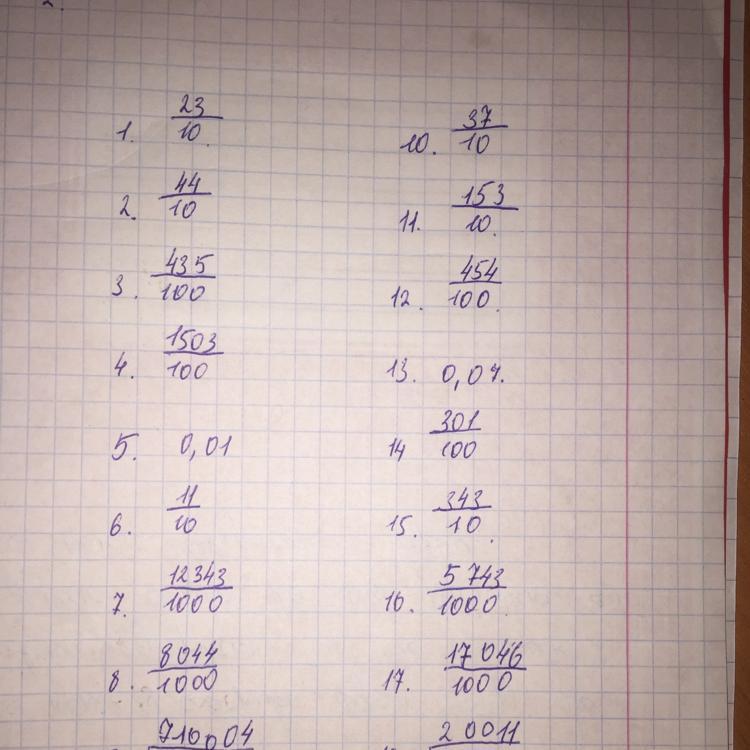 1. 23/10
2. 44/10
3. 435/100
4. 1503/100
5. 0,01
6. 11/10
7. 12343/1000
8. 8044/1000
710004
10. 37/10
11. 153/10
12. 454/100
13. 0,07
14 301/100
15. 343/10
16. 5743/1000
17. 17046/1000
20011